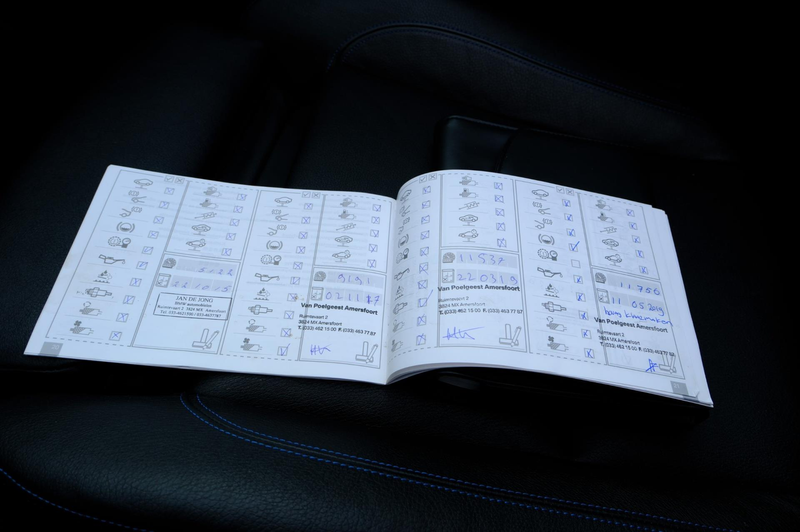 22 10 15
JAN DE JONG
BMW automobielen
Ruimtevaart 2 3824 MX Amersfoort
9191
02 11 17
Van Poelgeest Amersfoort
Ruimtevaart 2
3824 MX Amersfoort
T. (033) 462 15 00 F. (033) 463 77 87
11537
22 03 19
Van Poelgeest Amersfoort
Ruimtevaart 2
3824 MX Amersfoort
T. (033) 462 15 00 F. (033) 463 77 87
11 05 2019
Van Poelgeest Amersfoort
Ruimtevaart 2
3824 MX Amersfoort
T. (033) 462 15 00 F. (033) 463 77 87